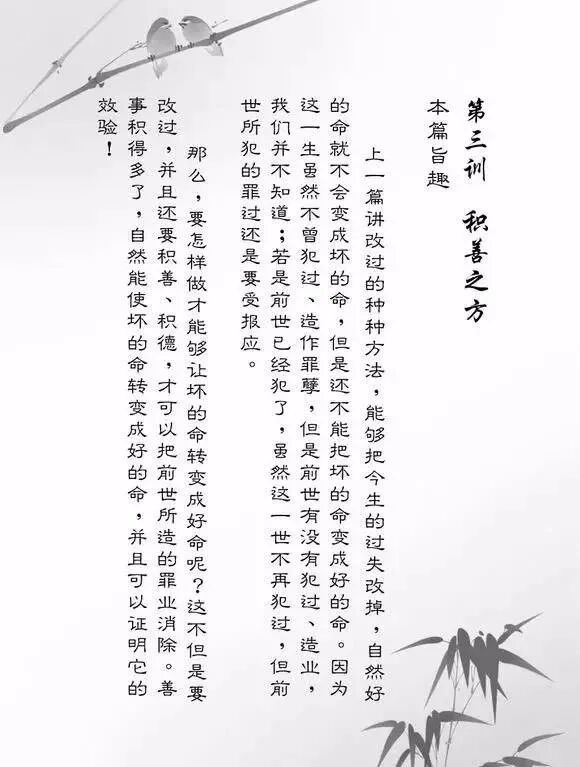 第三训　积善之方
本篇旨趣
上一篇讲改过的种种方法，能够把今生的过失改掉，自然好
的命就不会变成坏的命，但是还不能把坏的命变成好的命。因为
这一生虽然不曾犯过、造作罪孽，但是前世有没有犯过、造业，
我们并不知道；若是前世已经犯了，虽然这一世不再犯过，但前
世所犯的罪过还是要受报应。
那么，要怎样做才能够让坏的命转变成好命呢？这不但是要
改过，并且还要积善、积德，才可以把前世所造的罪业消除。善
事积得多了，自然能使坏的命转变成好的命，并且可以证明它的
效验！